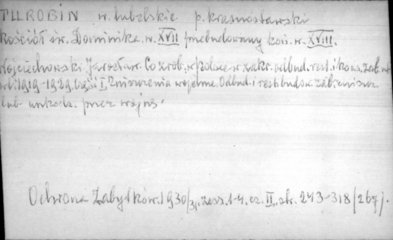 TUROBIN w. lubelskie p. krasnostawski
Kościół św. Dominika w. XVII przebudowany kon. w. XVIII.
Wojciechowski Jarosław. Co zrob. w Polsce w zakr. odbud. rest. i konz. zab.
1919-1929. cz. I. Zniszczenia wojenne. Odbud. i rest. budow. zab. zniszcz.
lub uszkodz. przez wojnę.
Ochrona Zabytków. 1930/31, zesz. 1-4, cz. II, str. 243-318 (267).